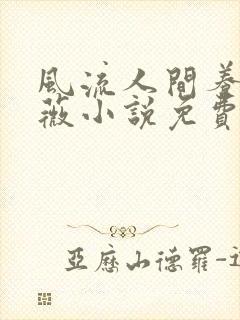 風流人間蔷
薇小說免費
亞歷山德羅-